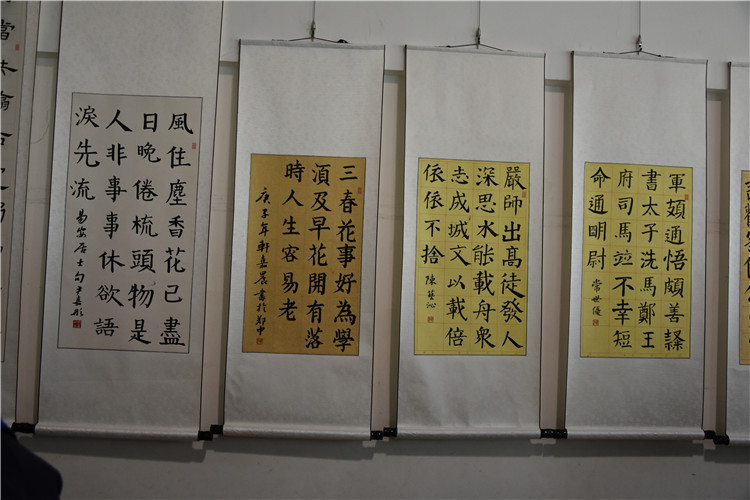 風住塵香花已盡
日晚倦梳頭物是
人非事事休欲語
淚先流
易安居士句尹嘉彤
三春花事好為學
須及早花開有落
時人生容易老
庚子年軒嘉晨書於
嚴師出髙徒發人
深思水能載舟衆
志成城文以載倍
依依不捨
陳藝沁
軍頗通悟頗善謀
書太子洗馬鄭王
府司馬竝不幸短
命通明尉
常世優